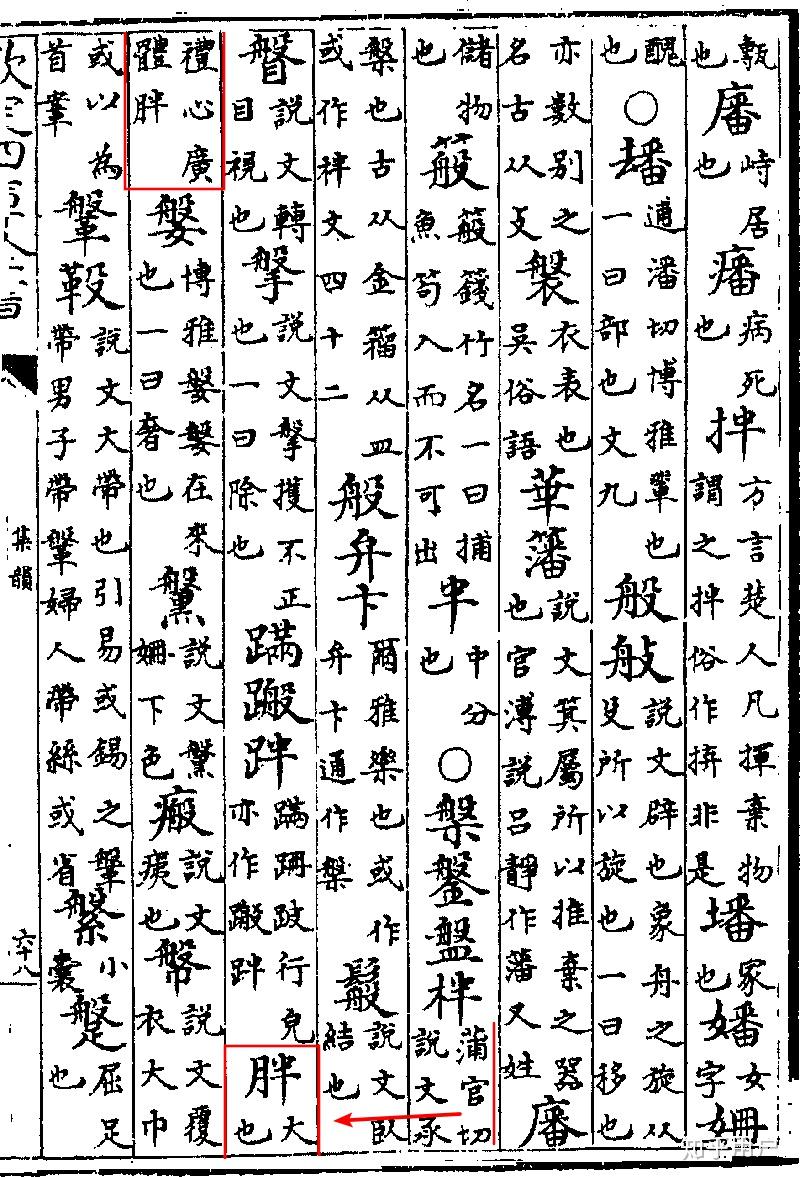 甎也 峙居也 病死也 拌方言楚人凡揮棄物謂之拌俗作拚非是 墦冢也 嬏女字 姍
醜也○ 逋潘切博雅 也一曰部也文九 般 說文辟也象舟之旋从殳所以旋也一曰移也
亦數別之名古从攴 褩衣表也吳俗語 華 籓說文箕屬所以推棄之器也官溥說呂靜作籓又姓
儲物也 籛竹名一曰捕魚笱入而不可出 中分也○槃鎜盤柈蒲官切說文承
槃也古从金籀从皿或作柈文四十二 般弁卞爾雅樂也或作弁卞通作槃 說文臥結也
說文轉目視也 搫說文搫擭不正也一曰除也 蹣 跘蹣跚跛行皃亦作 跘 胖大也
禮心廣體胖 媻博雅媻 在來也一曰奢也 說文 姍下色 瘢說文痍也 幋說文覆衣大巾
或以為首鞶 鞶 說文大帶也引易或錫之鞶帶男子帶鞶婦人帶絲或省 縏小囊 屈足也
集韻
六十八
知乎用户